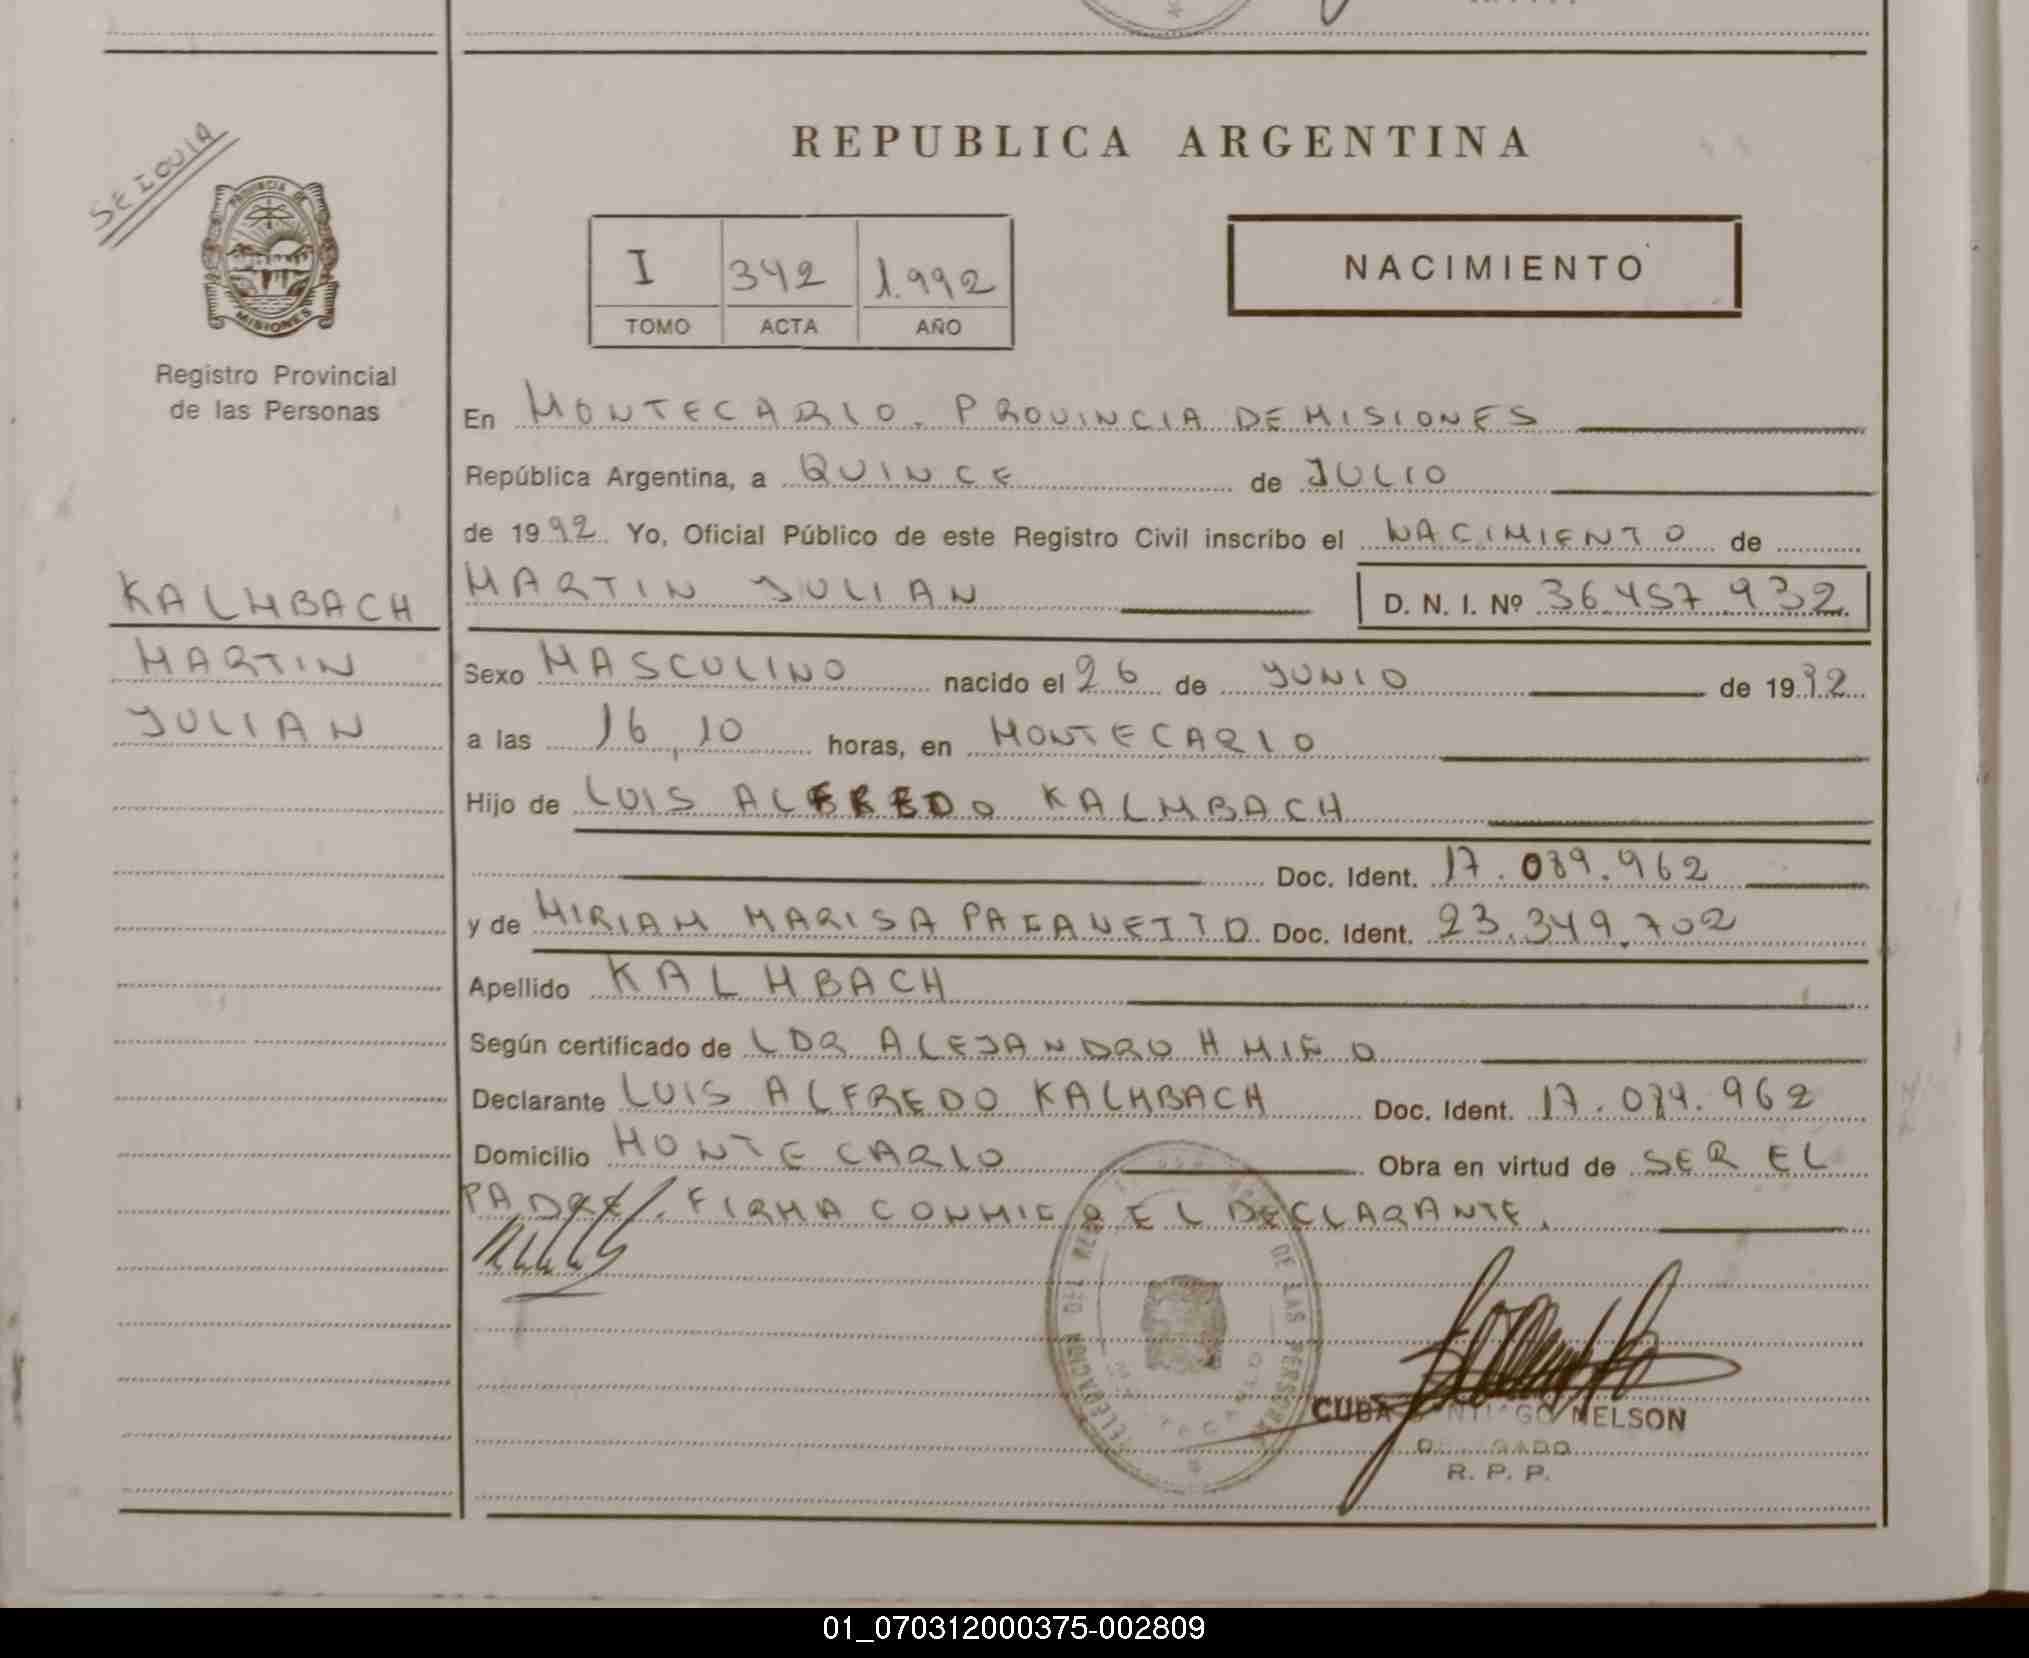 SEIQUIA
REPUBLICA ARGENTINA
PROVINCIA DE
MISIONES
I 342 1.992
TOMO ACTA AÑO
NACIMIENTO
Registro Provincial
de las Personas
KALMBACH
MARTIN
JULIAN
En MONTECARLO. PROVINCIA DE MISIONES
República Argentina, a QUINCE de JULIO
de 1992 Yo, Oficial Público de este Registro Civil inscribo el NACIMIENTO de
MARTIN JULIAN D. N. I. Nº 36.457.932
Sexo MASCULINO nacido el 26 de JUNIO de 1992
a las 16,10 horas, en MONTECARLO
Hijo de LUIS ALFREDO KALMBACH
Doc. Ident. 17.089.962
y de MIRIAM MARISA Doc. Ident. 23.349.702
Apellido KALMBACH
Según certificado de LDR ALEJANDRO H MIÑO
Declarante LUIS ALFREDO KALMBACH Doc. Ident. 17.089.962
Domicilio MONTECARLO Obra en virtud de SER EL
PADRE. FIRMA CONMIGO EL DECLARANTE.
DELEGACION DE LAS PERSONAS
CUBA SANTIAGO NELSON
DELEGADO
R. P. P.
01_070312000375-002809